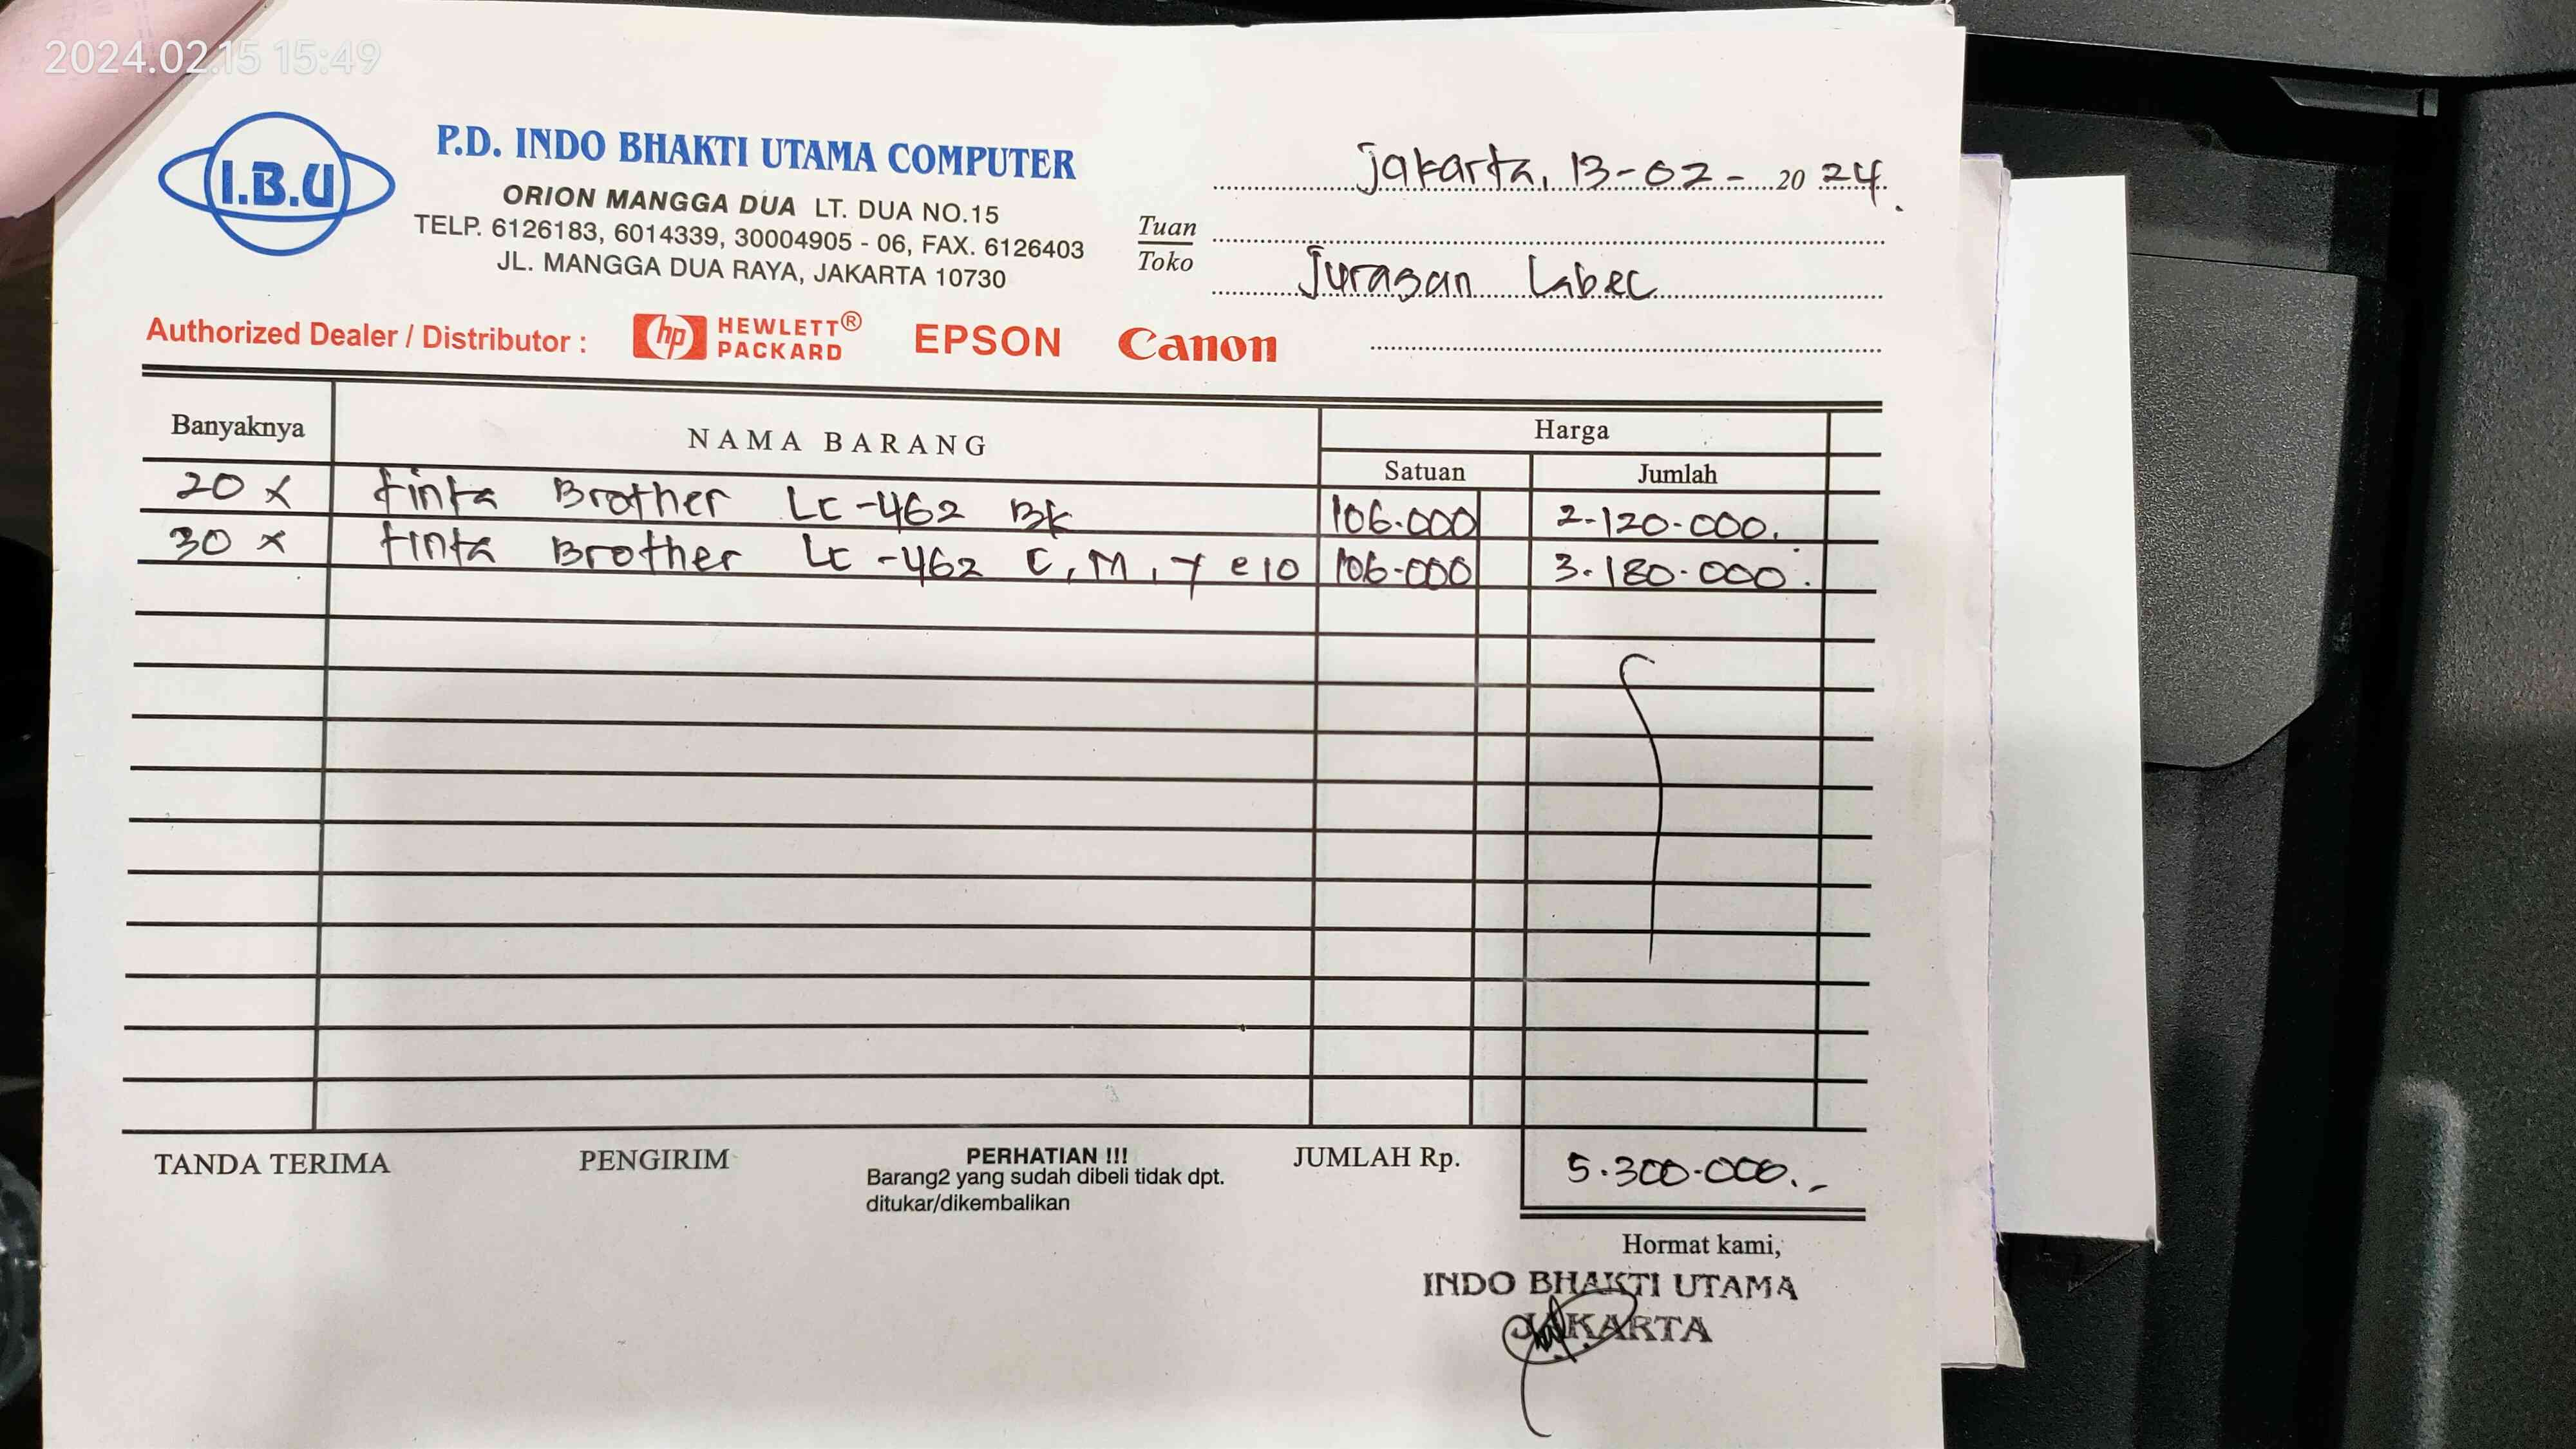 2024.02.15 15:49
I.B.U
P.D. INDO BHAKTI UTAMA COMPUTER
ORION MANGGA DUA LT. DUA NO.15
TELP. 6126183, 6014339, 30004905 - 06, FAX. 6126403
JL. MANGGA DUA RAYA, JAKARTA 10730
Jakarta, 13-02- 20 24.
Tuan
Toko
Juragan Label
Authorized Dealer / Distributor : hp HEWLETT® PACKARD EPSON Canon
Banyaknya NAMA BARANG Harga
Satuan Jumlah
20 x tinta Brother LC-462 BK 106.000 2.120.000.
30 x tinta Brother LC-462 C, M, Y @ 10 106.000 3.180.000.
TANDA TERIMA PENGIRIM PERHATIAN !!! JUMLAH Rp. 5.300.000.-
Barang2 yang sudah dibeli tidak dpt.
ditukar/dikembalikan
Hormat kami,
INDO BHAKTI UTAMA
JAKARTA